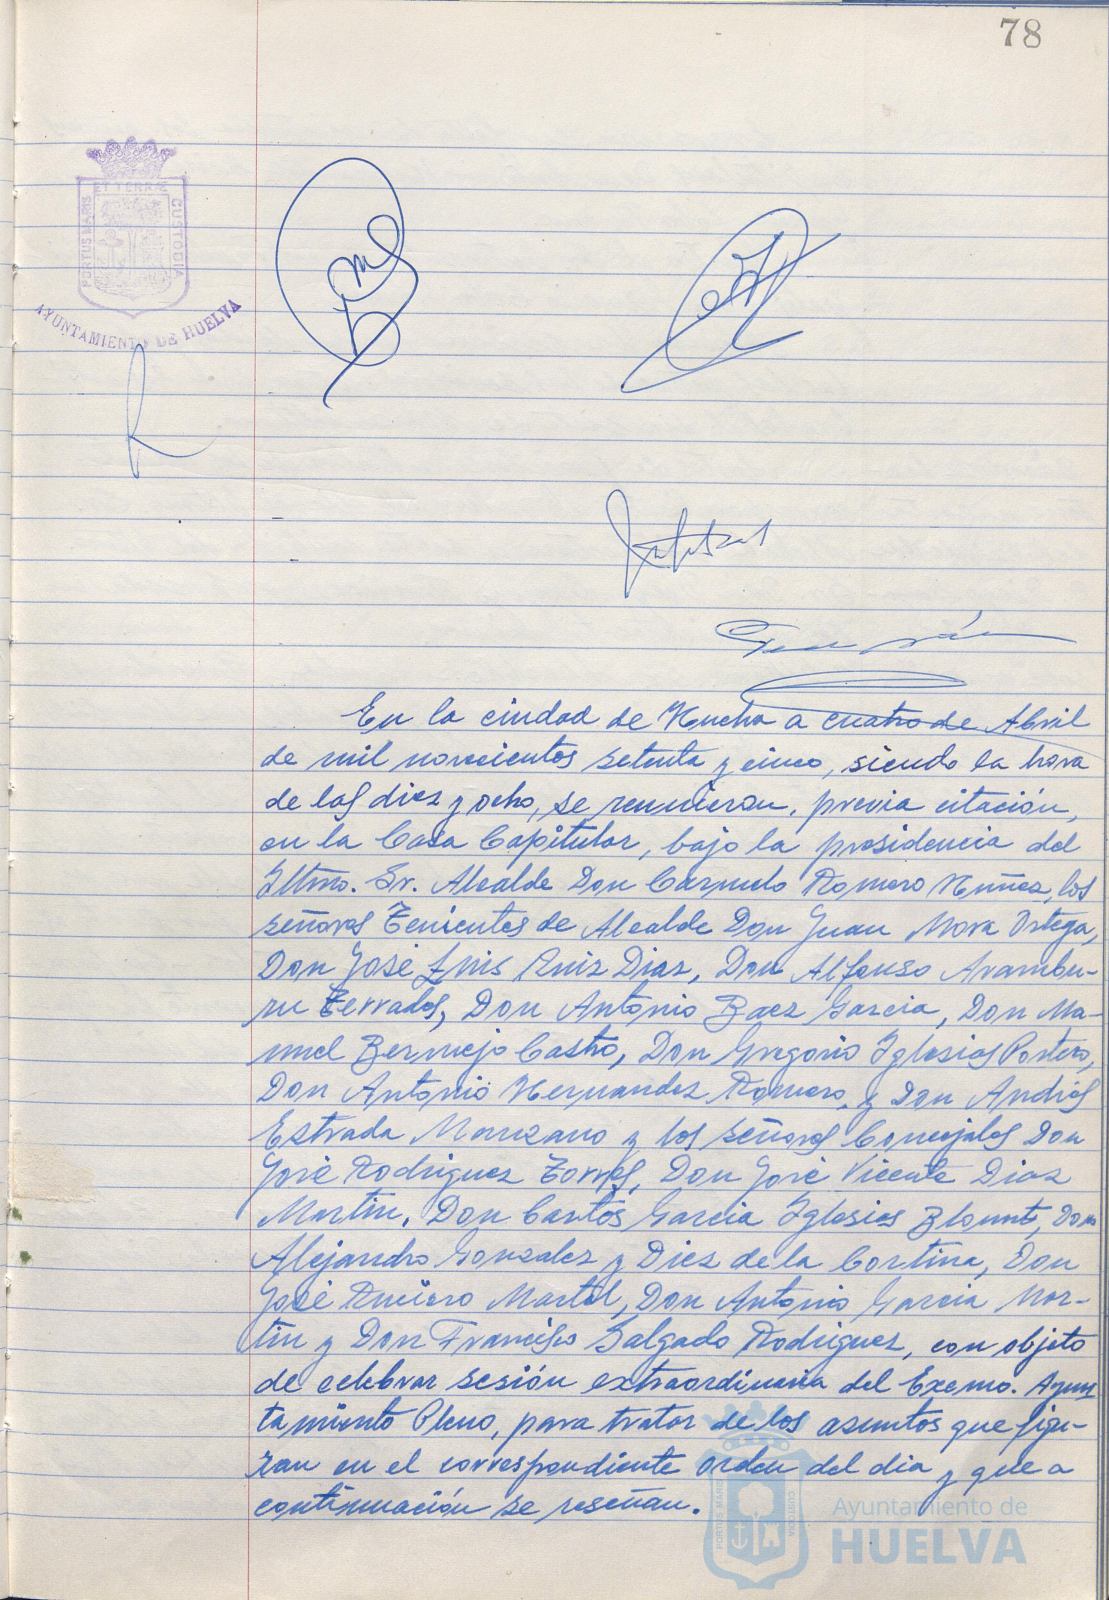 78
ET TERRÆ
PORTUS MARIS
CUSTODIA
AYUNTAMIENTO DE HUELVA
En la ciudad de Huelva a cuatro de Abril
de mil novecientos setenta y cinco, siendo la hora
de las diez y ocho, se reunieron, previa citación,
en la Casa Capitular, bajo la presidencia del
Iltmo. Sr. Alcalde Don Carmelo Romero Núñez, los
señores Tenientes de Alcalde Don Juan Mora Ortega,
Don José Luis Ruiz Diaz, Don Alfonso Arambu-
ru Terrados, Don Antonio Baez Garcia, Don Ma-
nuel Bermejo Castro, Don Gregorio Iglesias Portero,
Don Antonio Hernandez Romero, y Don Andrés
Estrada Manzano y los señores Concejales Don
José Rodriguez Torres, Don José Vicente Diaz
Martin, Don Carlos Garcia Iglesias Blount, Don
Alejandro Gonzalez y Diez de la Cortina, Don
José Martel, Don Antonio Garcia Mar-
tin y Don Francisco Salgado Rodriguez, con objeto
de celebrar sesión extraordinaria del Excmo. Ayun
tamiento Pleno, para tratar de los asuntos que figu-
ran en el correspondiente orden del dia y que a
continuación se reseñan.
PORTUS MARIS
CUSTODIA
Ayuntamiento de
HUELVA